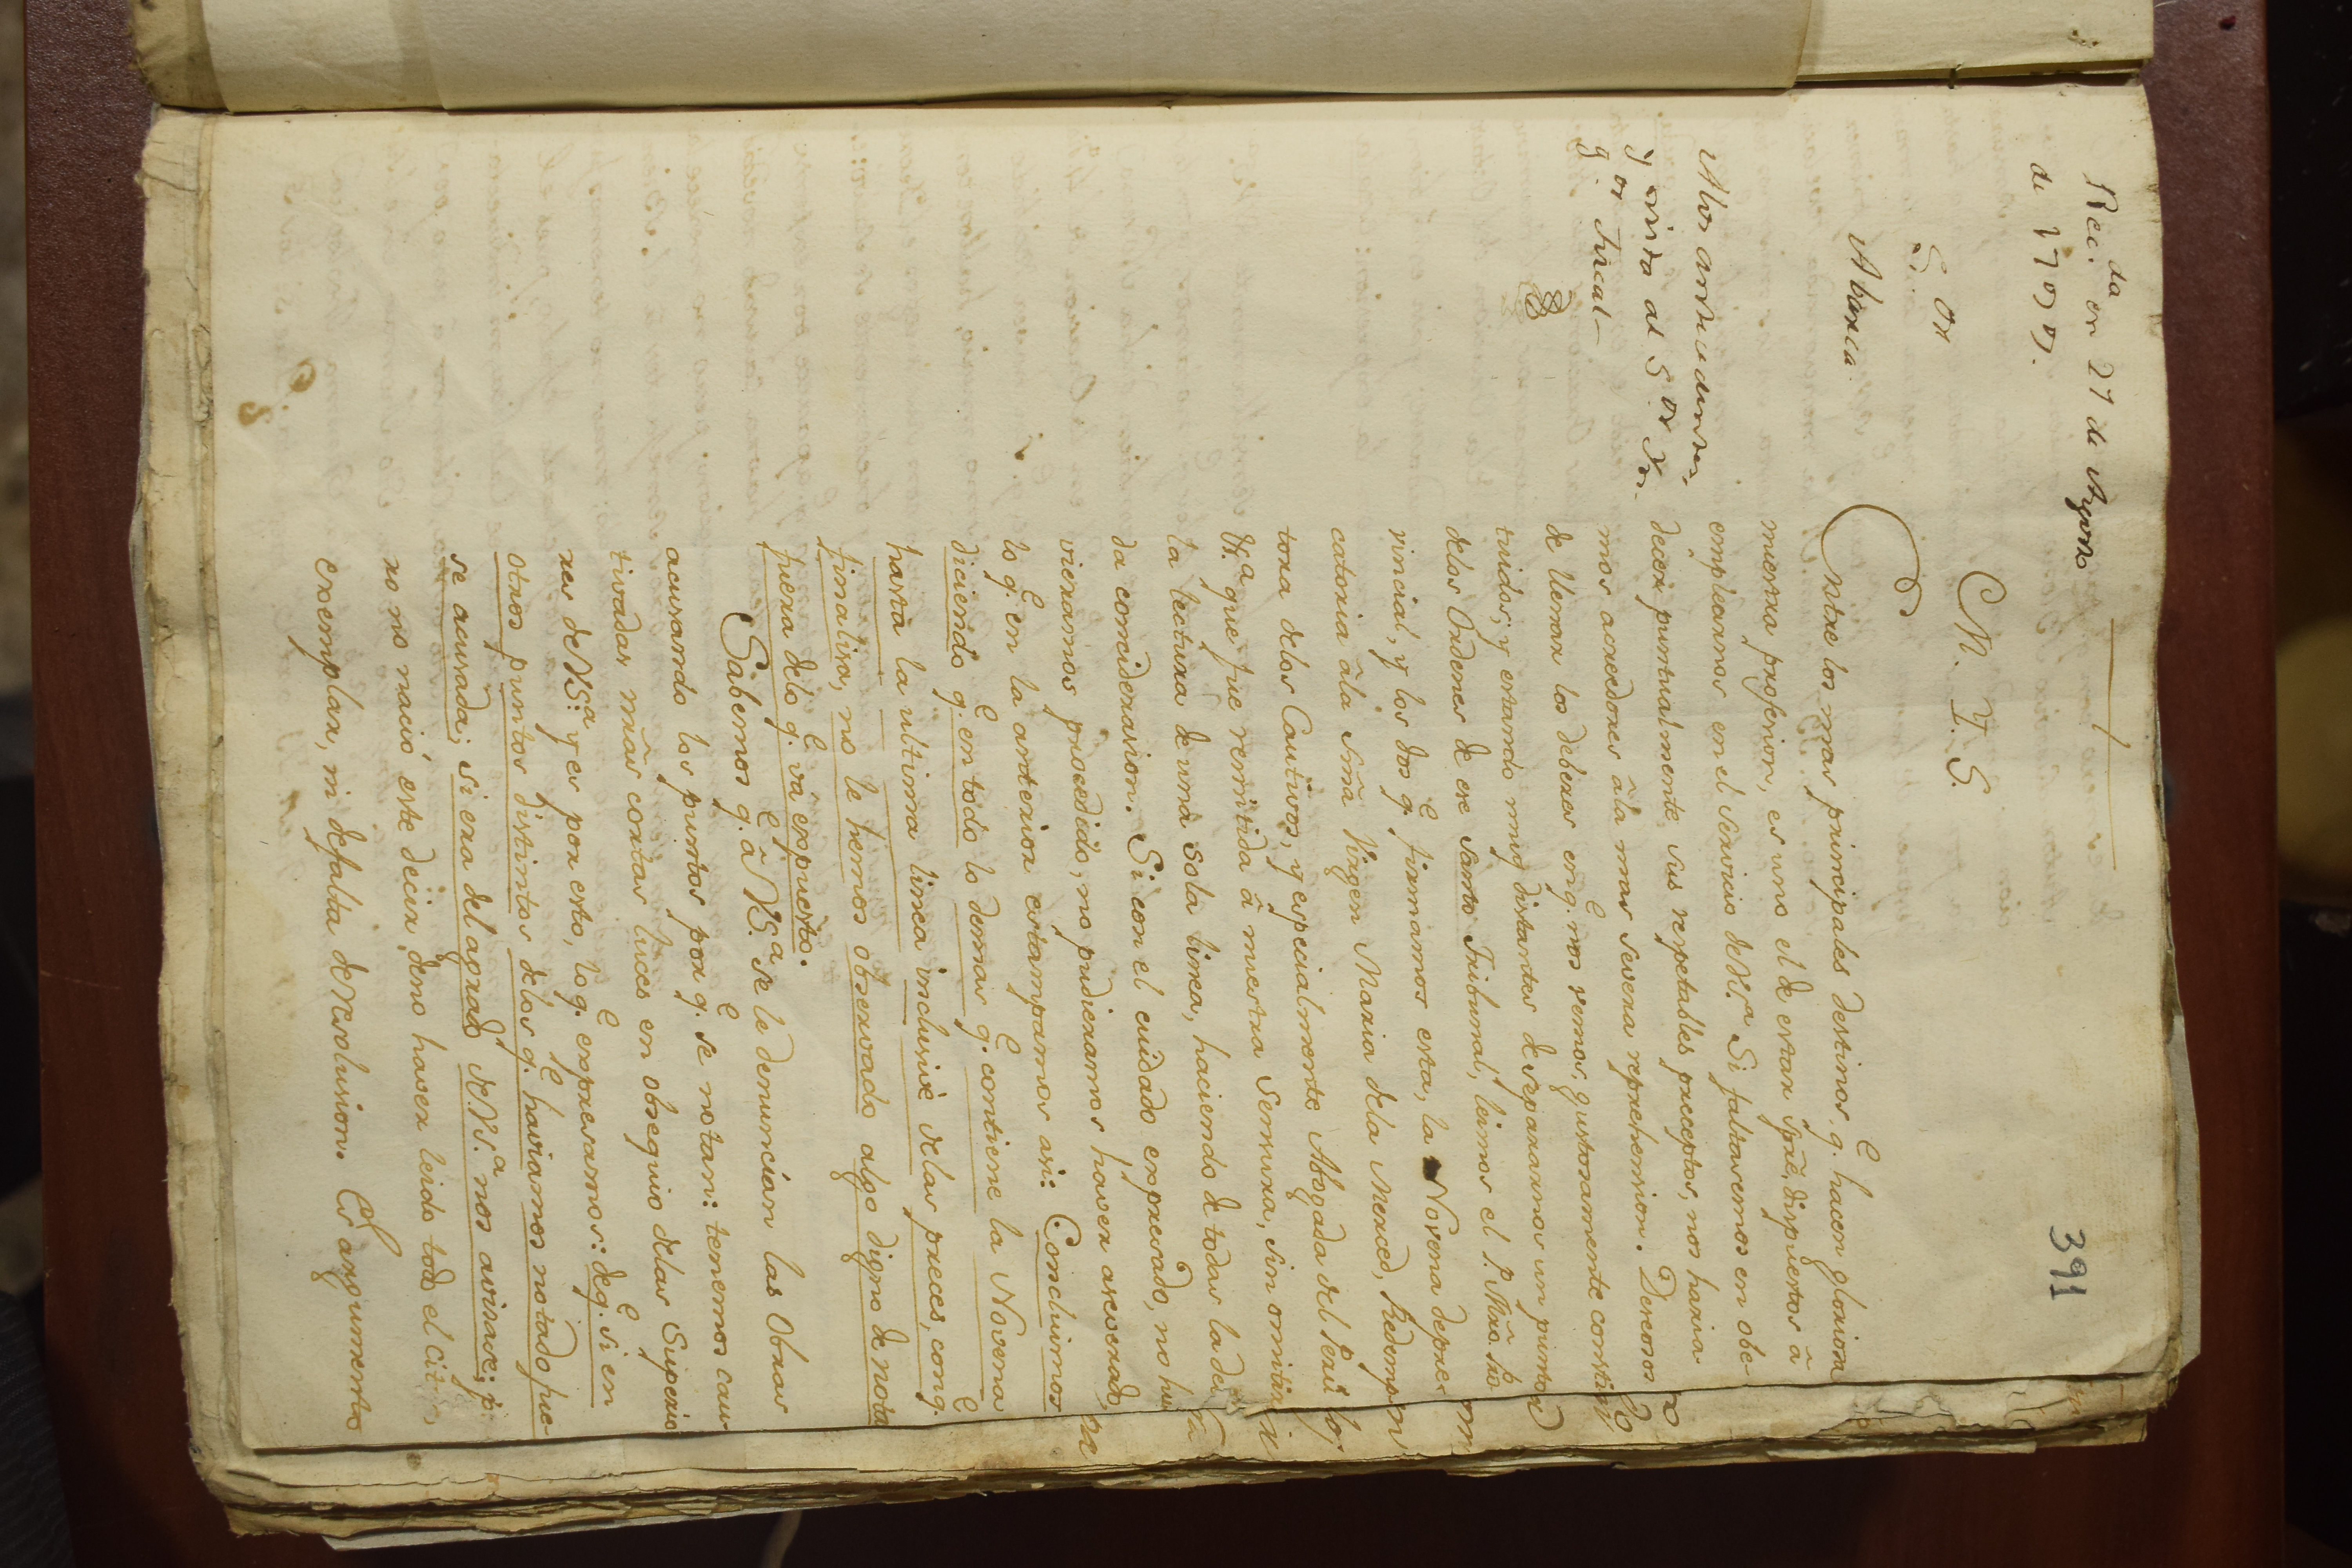 391
Rec.da en 27 de Agosto
de 1799.
S.or
Abarca
A los antecedentes,
y vista al S.or In-
q.or Fiscal
M. Y. S.
Entre los mas principales destinos, q.e hacen gloriosa
nuestra profesion, es uno el de estar sprẽ dispuestos â
emplearnos en el servicio de VS.a Si faltaremos en obe-
decer puntualmente sus respetables preceptos, nos haria-
mos acreedores âla mas severa reprehension. Deseosos
de llenar los deberes en q.e nos vemos gustosamente consti-
tuidos, y estando muy distantes de separarnos un punto
delos Ordenes de ese Santo Tribunal, leimos el P. Mrõ Pro-
vincial, y los dos q.e firmamos esta, la Novena depre-
catoria âla Smã Virgen Maria dela Merced, Redemp-
tora delos Cautivos, y especialmente Abogada del Perú
VS.a que fue remitida â nuestra Censura, sin omitir
la lectura de una sola linea, haciendo de todas la de-
da consideracion. Si con el cuidado expresado, no hu-
vieramos procedido, no pudieramos haver aseverado,
lo q.e en la anterior estampamos asi: Concluimos
diciendo q.e en todo lo demas q.e contiene la Novena
hasta la ultima linea inclusivè delas preces, con q.e
finaliza, no le hemos observado algo digno de nota
fuera delo q.e và expuesto.
Sabemos q.e â VS.a se le denuncian las Obras
acusando los puntos por q.e se notan: tenemos cau-
tivadas nrãs cortas luces en obsequio delas Superio-
res de VS.a y es por esto, lo q.e expresamos: deq.e si en
otros puntos distintos delos q.e haviamos notado fue-
se acusada; si era del agrado de VS.a nos avisase; p.
ro no nació este decir, deno haver leido todo el cit.
exemplar, ni defalta de resolucion. Es argumento